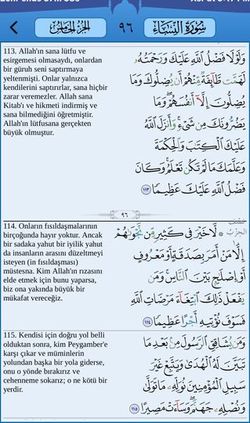 الجزء الخامس ٩٦ سورة النساء
113. Allah'ın sana lütfu ve
esirgemesi olmasaydı, onlardan
bir güruh seni saptırmaya
yeltenmişti. Onlar yalnızca
kendilerini saptırırlar, sana hiçbir
zarar veremezler. Allah sana
Kitab'ı ve hikmeti indirmiş ve
sana bilmediğini öğretmiştir.
Allah'ın lütfusana gerçekten
büyük olmuştur.
وَلَوْلَا فَضْلُ ٱللَّهِ عَلَيْكَ وَرَحْمَتُهُۥ
لَهَمَّت طَّآئِفَةٌ مِّنْهُمْ أَن يُضِلُّوكَ وَمَا
يُضِلُّونَ إِلَّآ أَنفُسَهُمْ ۖ وَمَا
يَضُرُّونَكَ مِن شَىْءٍ ۚ وَأَنزَلَ ٱللَّهُ
عَلَيْكَ ٱلْكِتَٰبَ وَٱلْحِكْمَةَ
وَعَلَّمَكَ مَا لَمْ تَكُن تَعْلَمُ ۚ وَكَانَ
فَضْلُ ٱللَّهِ عَلَيْكَ عَظِيمًا ١١٣
٩٦
114. Onların fısıldaşmalarının
birçoğunda hayır yoktur. Ancak
bir sadaka yahut bir iyilik yahut
da insanların arasını düzeltmeyi
isteyen (in fısıldaması)
müstesna. Kim Allah'ın rızasını
elde etmek için bunu yaparsa,
biz ona yakında büyük bir
mükafat vereceğiz.
لَّا خَيْرَ فِى كَثِيرٍ مِّن نَّجْوَىٰهُمْ
إِلَّا مَنْ أَمَرَ بِصَدَقَةٍ أَوْ مَعْرُوفٍ
أَوْ إِصْلَٰحٍۭ بَيْنَ ٱلنَّاسِ ۚ وَمَن
يَفْعَلْ ذَٰلِكَ ٱبْتِغَآءَ مَرْضَاتِ ٱللَّهِ
فَسَوْفَ نُؤْتِيهِ أَجْرًا عَظِيمًا ١١٤
115. Kendisi için doğru yol belli
olduktan sonra, kim Peygamber'e
karşı çıkar ve müminlerin
yolundan başka bir yola giderse,
onu o yönde bırakırız ve
cehenneme sokarız; o ne kötü bir
yerdir.
وَمَن يُشَاقِقِ ٱلرَّسُولَ مِنۢ بَعْدِ مَا
تَبَيَّنَ لَهُ ٱلْهُدَىٰ وَيَتَّبِعْ غَيْرَ
سَبِيلِ ٱلْمُؤْمِنِينَ نُوَلِّهِۦ مَا تَوَلَّىٰ
وَنُصْلِهِۦ جَهَنَّمَ ۖ وَسَآءَتْ مَصِيرًا ١١٥